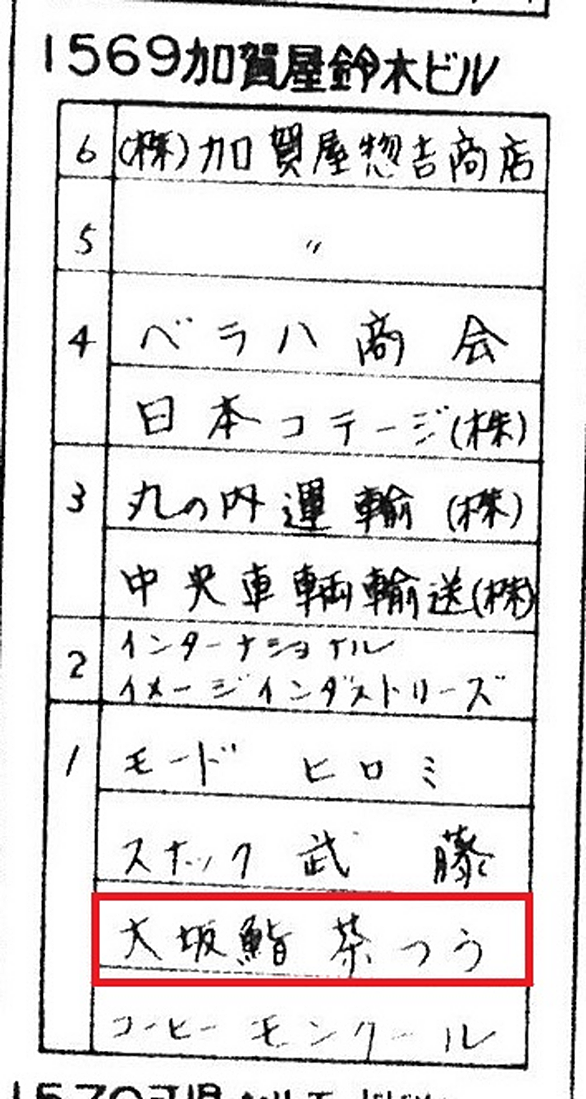 1569加賀屋鈴木ビル
6 (株)加賀屋惣吉商店
5 〃
4 ベラハ商会
日本コテージ(株)
3 丸の内運輸(株)
中央車輌輸送(株)
2 インターナショナル
イメージインダストリーズ
1 モードヒロミ
スナック武藤
大坂鮨 茶つう
コーヒーモンクール